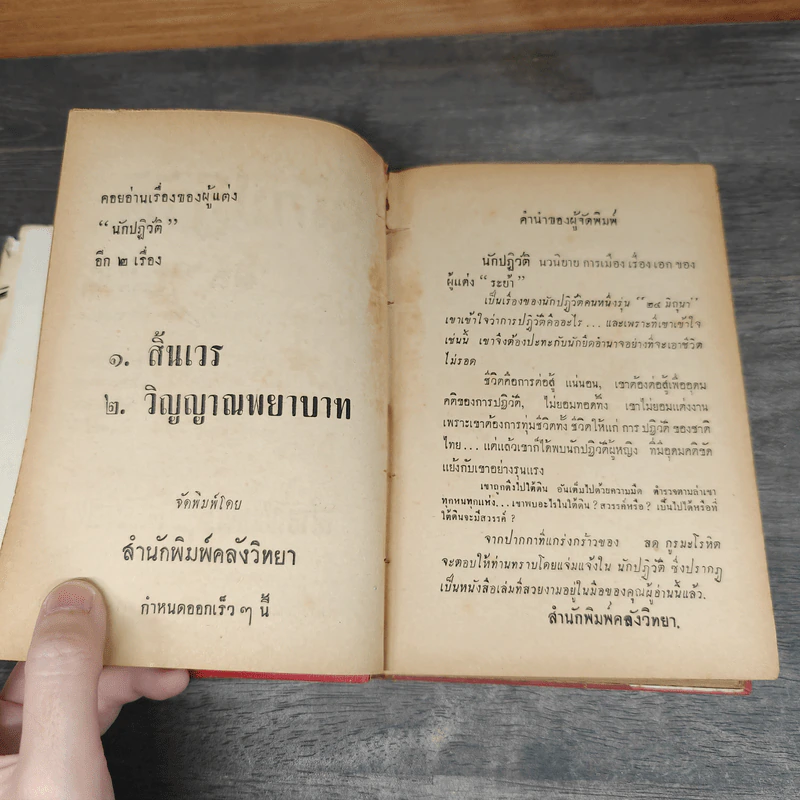 คอยอ่านเรื่องของผู้แต่ง
“นักปฏิวัติ”
อีก ๒ เรื่อง
๑. สิ้นเวร
๒. วิญญาณพยาบาท
จัดพิมพ์โดย
สำนักพิมพ์คลังวิทยา
กำหนดออกเร็ว ๆ นี้
คำนำของผู้จัดพิมพ์
นักปฏิวัติ นวนิยาย การเมือง เรื่อง เอก ของ
ผู้แต่ง “ระย้า”
เป็นเรื่องของนักปฏิวัติคนหนึ่งรุ่น “๒๔ มิถุนา”
เขาเข้าใจว่าการปฏิวัติคืออะไร ... และเพราะที่เขาเข้าใจ
เช่นนี้ เขาจึงต้องปะทะกับนักยึดอำนาจอย่างที่จะเอาชีวิต
ไม่รอด
ชีวิตคือการต่อสู้ แน่นอน, เขาต้องต่อสู้เพื่ออุดม
คติของการปฏิวัติ, ไม่ยอมทอดทิ้ง เขาไม่ยอมแต่งงาน
เพราะเขาต้องการทุ่มชีวิตทั้ง ชีวิตให้แก่ การ ปฏิวัติ ของชาติ
ไทย ... แต่แล้วเขาก็ได้พบนักปฏิวัติผู้หญิง ที่มีอุดมคติขัด
แย้งกับเขาอย่างรุนแรง
เขาถูกดึงไปใต้ดิน อันเต็มไปด้วยความมืด ตำรวจตามล่าเขา
ทุกหนทุกแห่ง...เขาพบอะไรในใต้ดิน? สวรรค์หรือ? เป็นไปได้หรือที่
ใต้ดินจะมีสวรรค์ ?
จากปากกาที่แกร่งกร้าวของ สด กูรมะโรหิต
จะตอบให้ท่านทราบโดยแจ่มแจ้งใน นักปฏิวัติ ซึ่งปรากฏ
เป็นหนังสือเล่มที่สวยงามอยู่ในมือของคุณผู้อ่านนี้แล้ว.
สำนักพิมพ์คลังวิทยา.